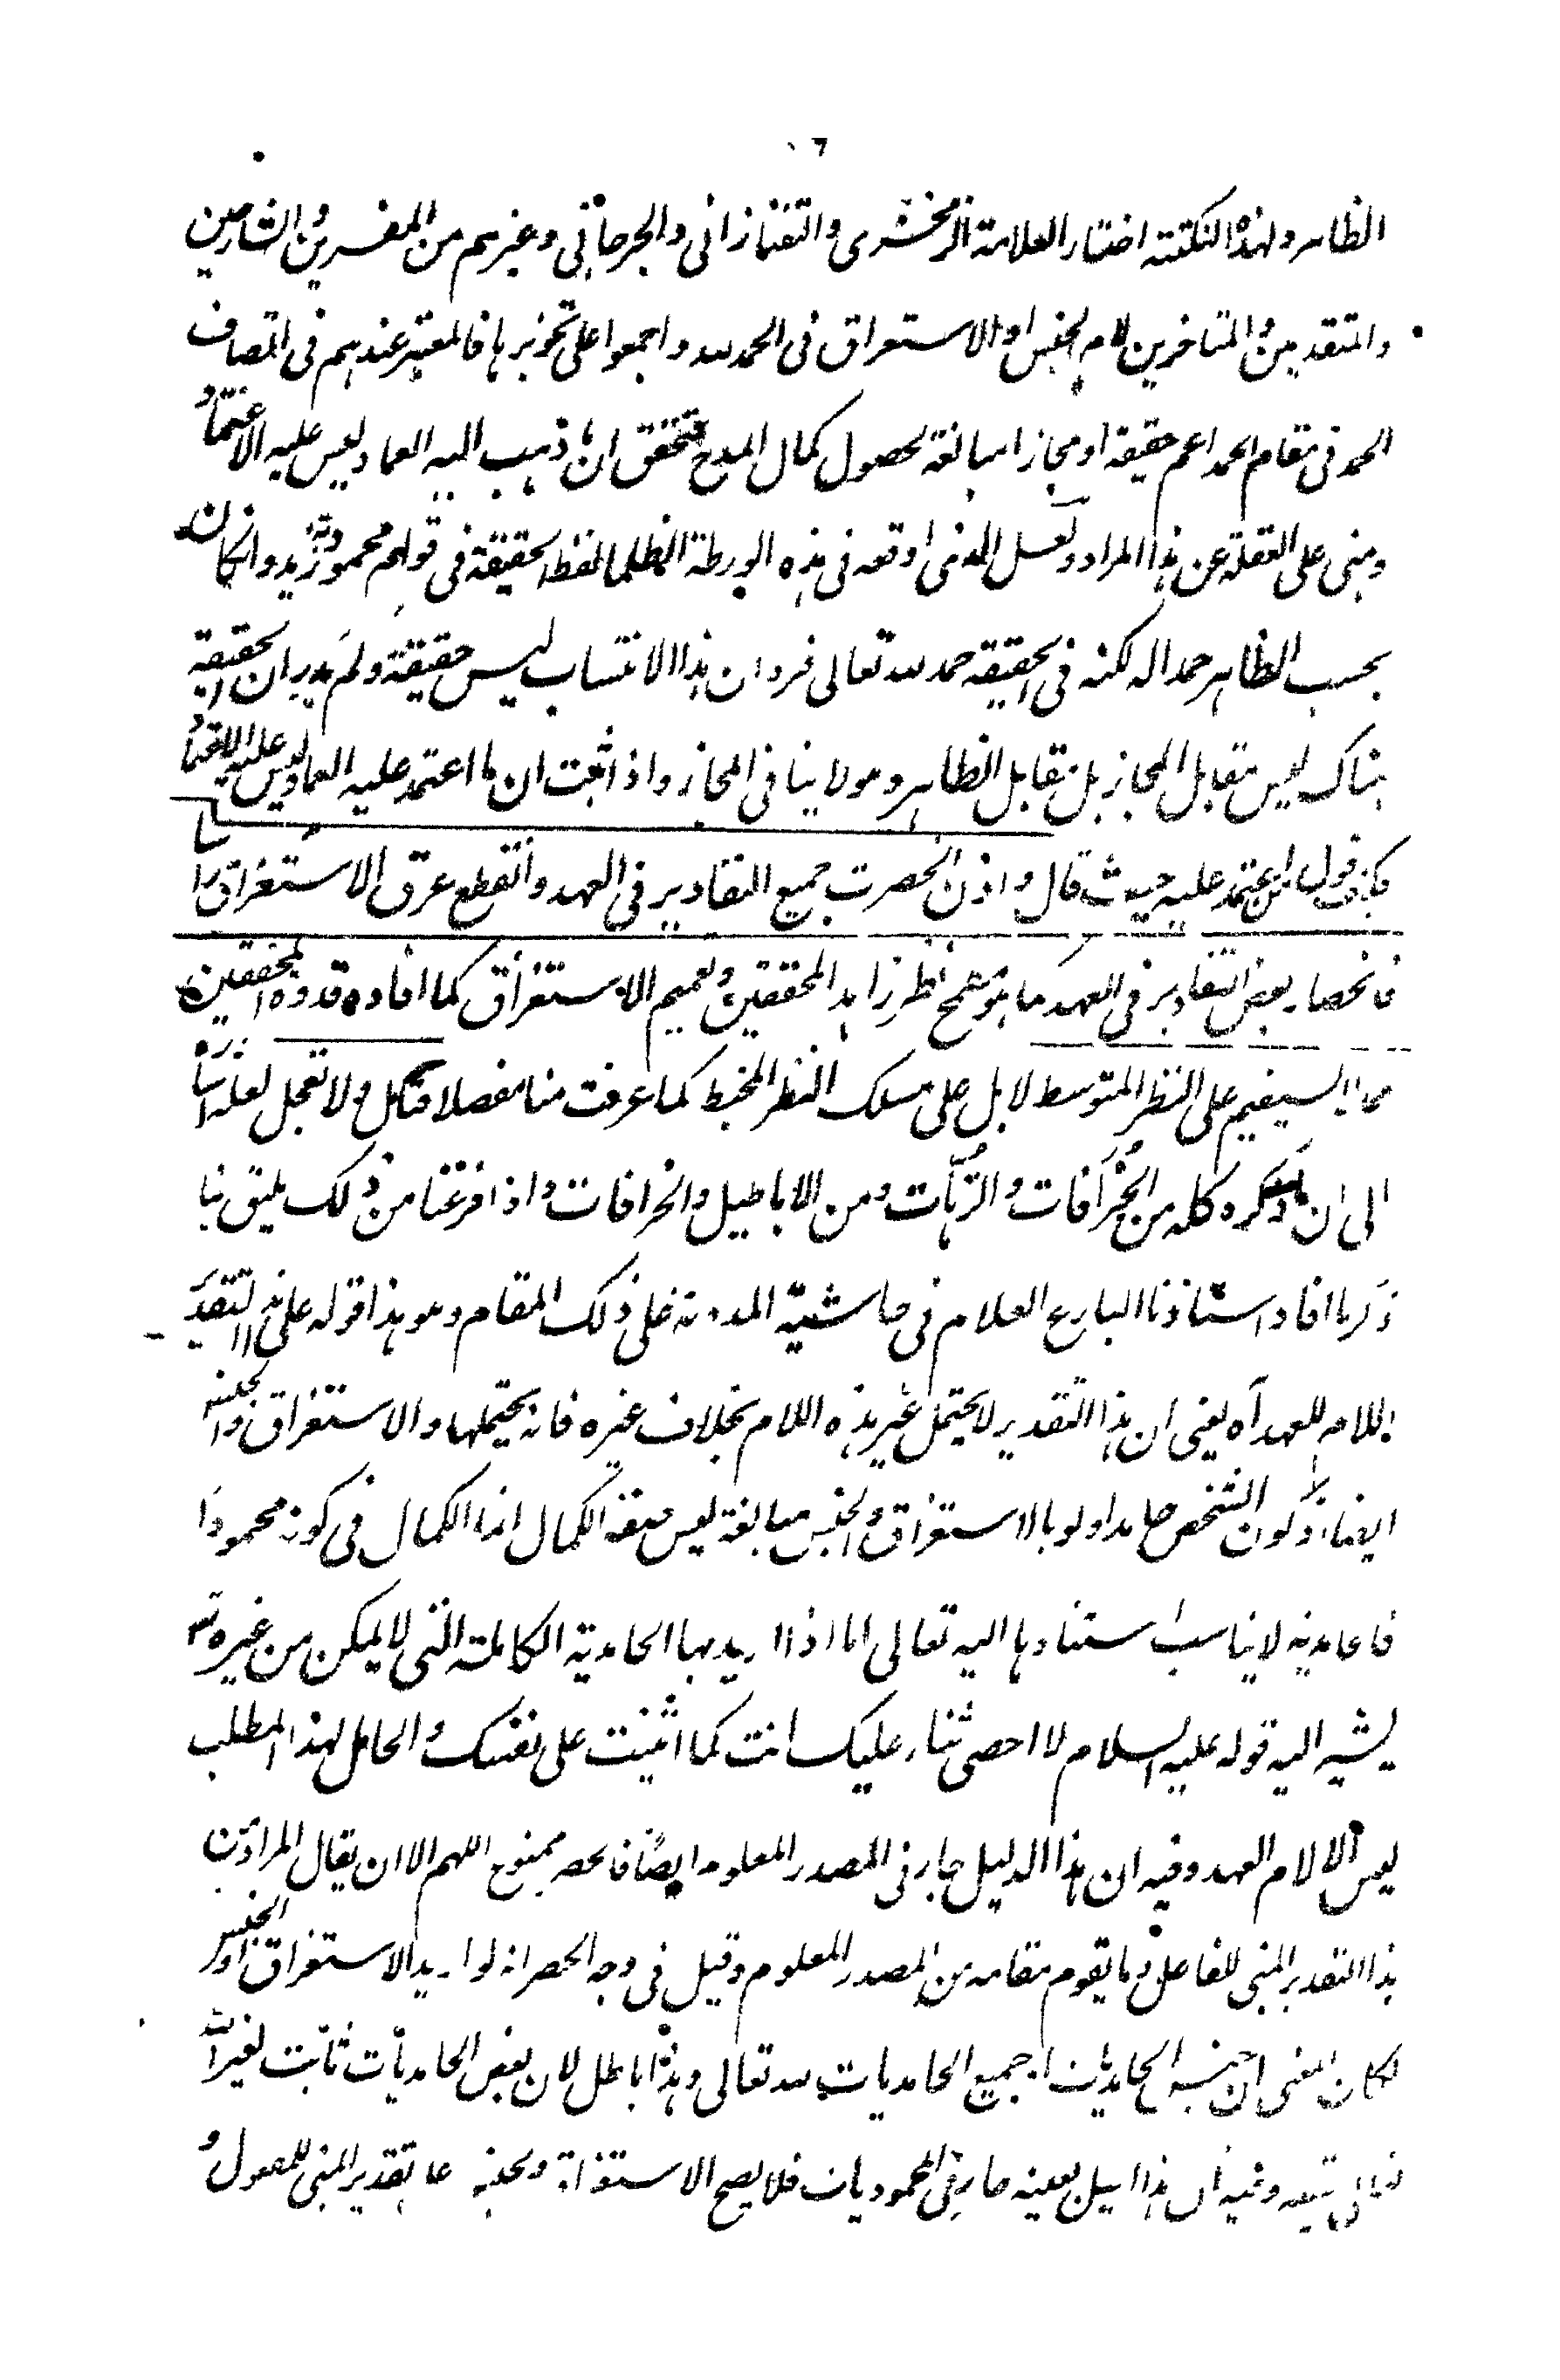 ٦
الظاهر ولهذه النكتة اختار العلامة الزمخشري والتفتازاني والجرجاني وغيرهم من المفسرين والشارحين
والمتقدمين والمتاخرين لام الجنس او الاستغراق في الحمد لله واجمعوا على تجويزها فالمعتبر عندهم في اتصاف
الحمد في مقام الحمد اعم حقيقة او مجازا مبالغة لحصول كمال المدح فتحقق ان ما ذهب اليه العماد ليس عليه الاعتماد
ومبنى على الغفلة عن هذا المراد ولعل الذي اوقعه في هذه الورطة الظلما لفظ الحقيقة في قولهم محمودية زيد وان كان
بحسب الظاهر حمدا له لكنه في الحقيقة حمد لله تعالى فرد ان هذا الانتساب ليس حقيقة ولم يدر ان الحقيقة
هناك ليس مقابل المجاز بل مقابل الظاهر وهو لا ينافي المجاز واذا ثبت ان ما اعتمد عليه العماد ليس عليه الاعتماد
فكيف قول من يعتمد عليه حيث قال واذن انحصرت جميع التقادير في العهد وانقطع عرق الاستغراق راسا
فانحصار بعض التقادير في العهد كما هو مشح نظر زاهد المحققين وتعميم الاستغراق كما افاده قدوة المحققين
مما لا يستقيم على النظر المتوسط لا بل على مسلك النظر المخبط كما عرفت منا مفصلا فتامل ولا تعجل لعله اشارة
الى ان ما ذكره كله من الجزافات والترهات ومن الاباطيل والخرافات واذا فرغنا من ذلك يليق بنا
ذكر ما افاد استاذنا البارع العلام في حاشية المدونة على ذلك المقام وهو هذا قوله على هذا التقدير
اللام للعهد آه يعني ان هذا التقدير لا يحتمل غير هذه اللام بخلاف غيره فانه يحتملها والاستغراق والجنس
ايضا اذ كون الشخص حامدا ولو بالاستغراق والجنس مبالغة ليس صفة الكمال انما الكمال في كونه محمودا
فالحامدية لا يناسب استنادها اليه تعالى اما اذا اريد بها الحامدية الكاملة التي لا يمكن من غيره تع
يشير اليه قوله عليه السلام لا احصى ثناء عليك انت كما اثنيت على نفسك والحامل لهذا المطلب
ليس الا لام العهد وفيه ان هذا الدليل جار في المصدر المعلوم ايضا فالحصر ممنوع اللهم الا ان يقال المراد من
هذا التقدير المبني للفاعل وما يقوم مقامه من المصدر المعلوم وقيل في وجه الحصر انه لو اريد الاستغراق او الجنس
لكان المعنى ان جنس الحامديات او جميع الحامديات لله تعالى وهذا باطل لان بعض الحامديات ثابت لغير الله
تعالى وفيه ان هذا الدليل بعينه جار في المحموديات فلا يصح الاستغراق والجنس على تقدير المبني للمفعول و